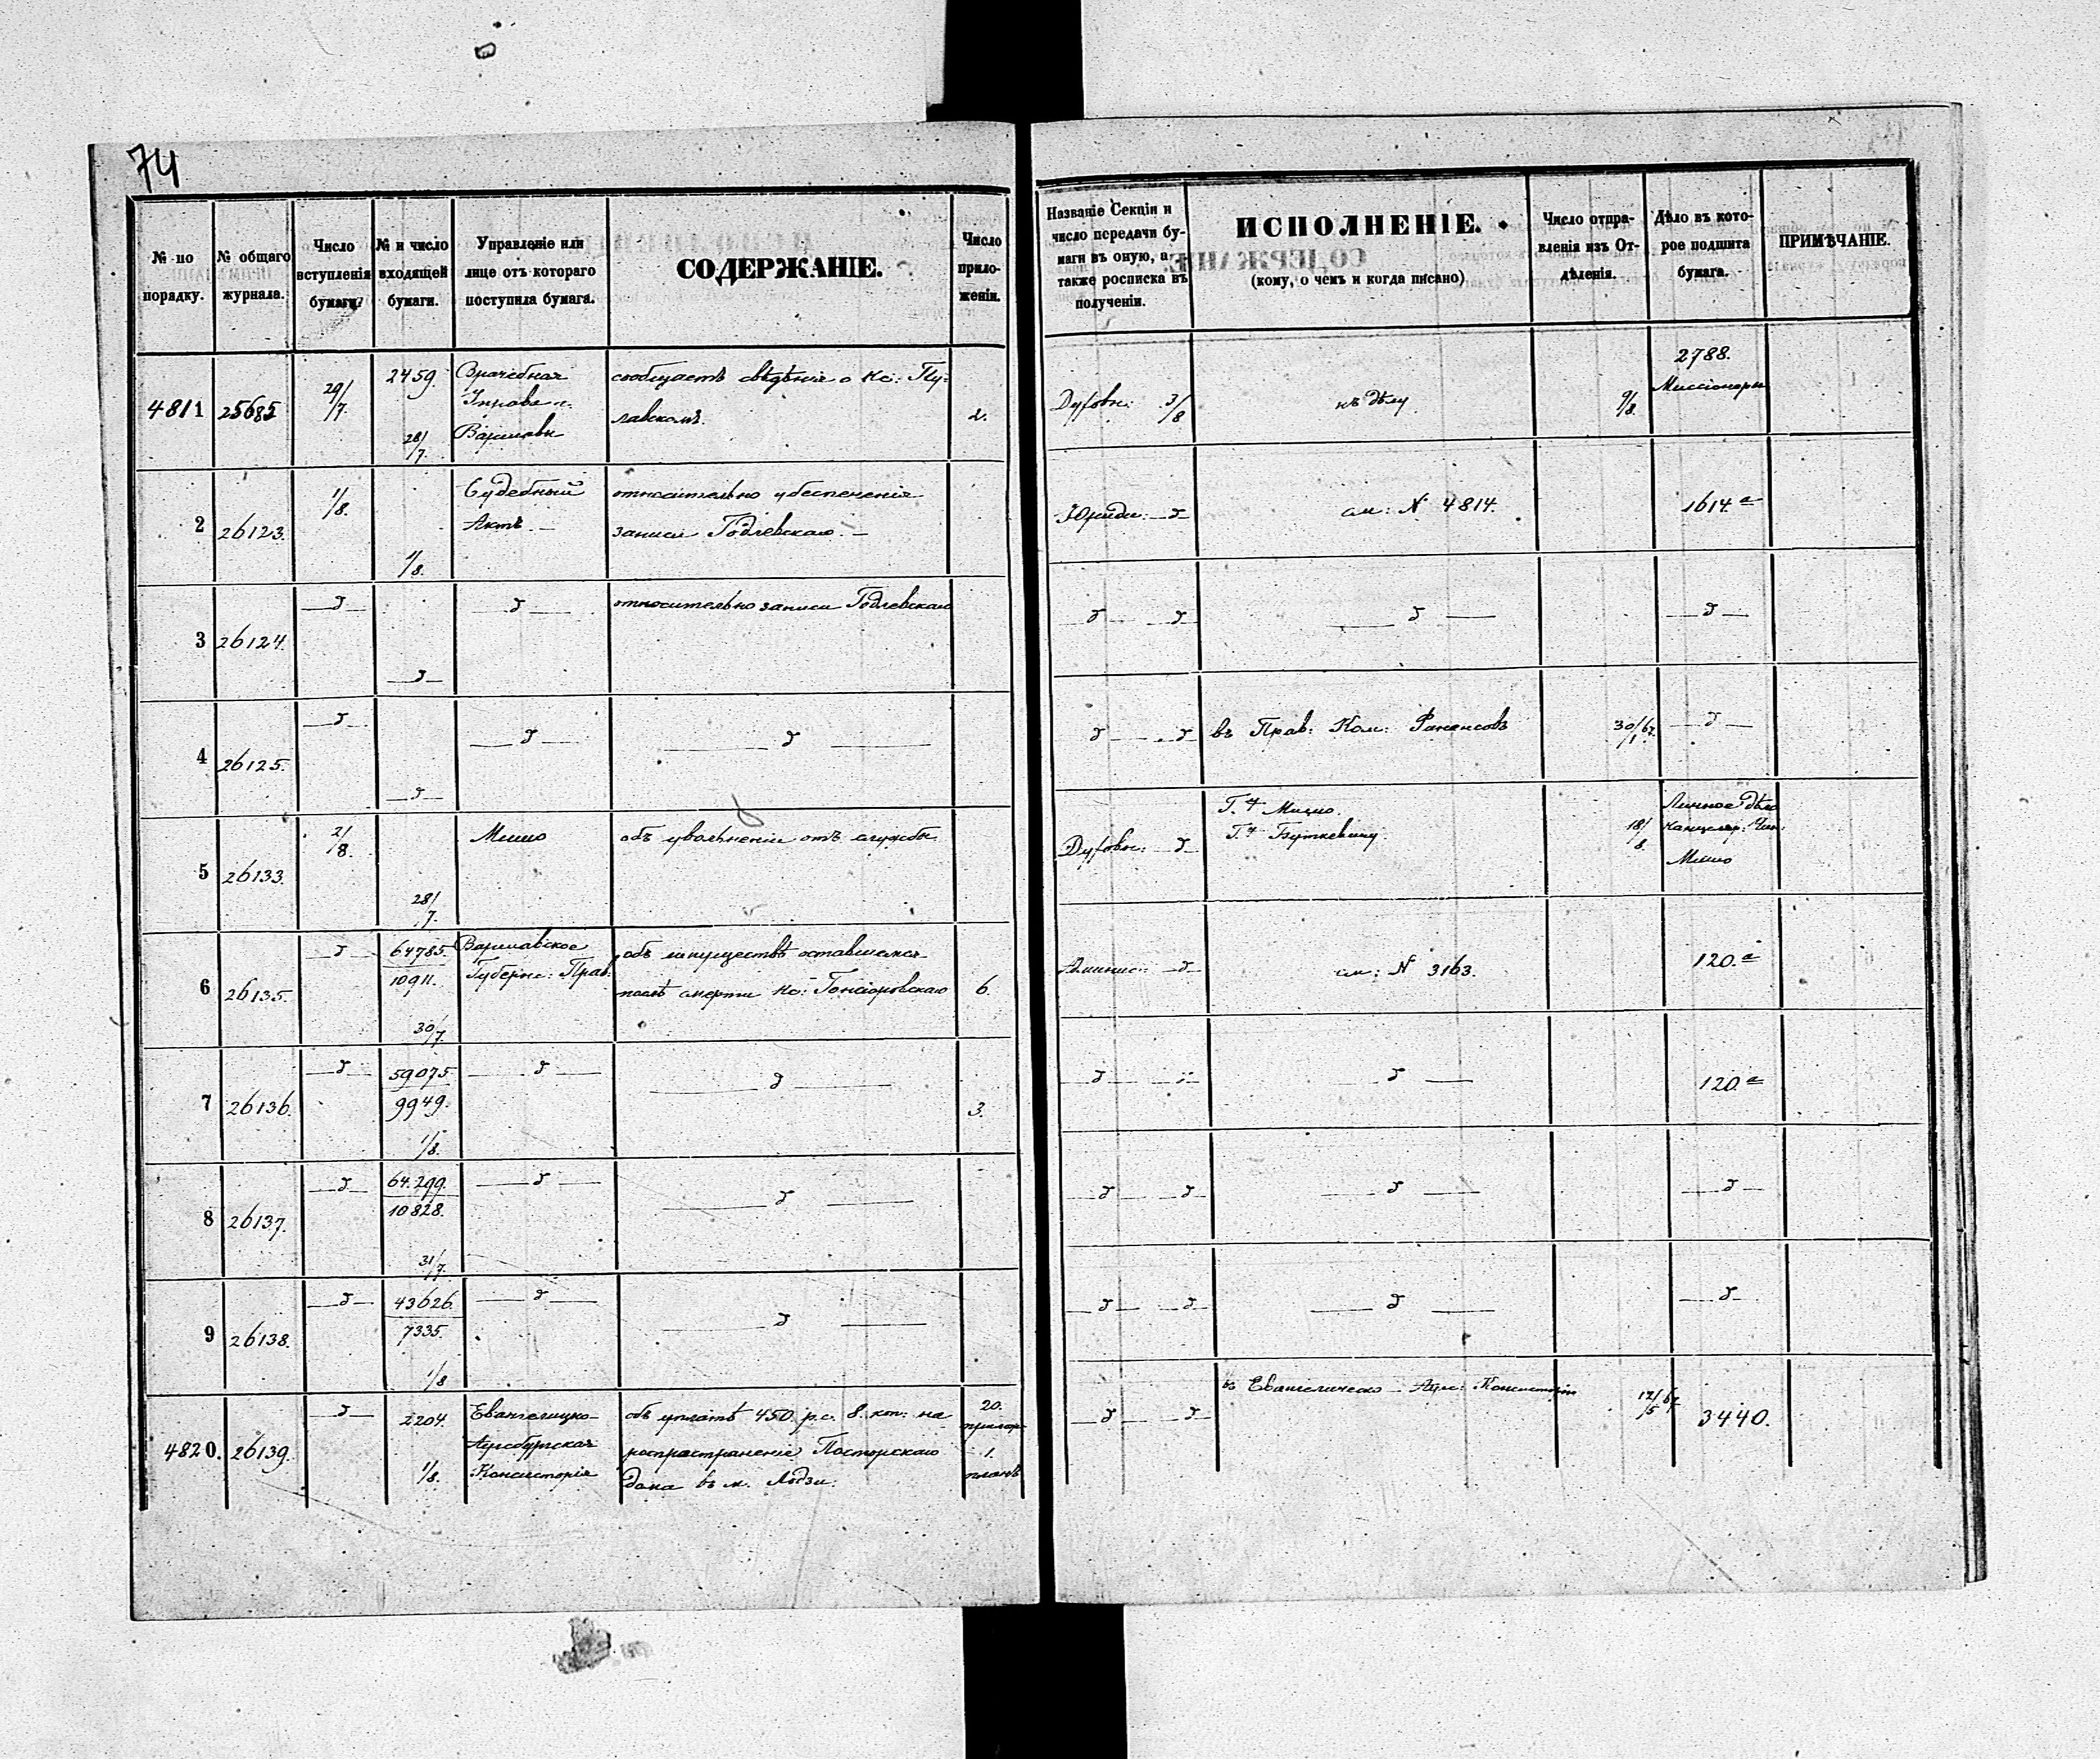 74
№ по порядку.
№ общаго журнала.
Число вступленія бумаги?
№ и число входящей бумаги.
Управленіе или лице отъ котораго поступила бумага.
СОДЕРЖАНІЕ.
Число прило- женіи.
Названіе Секціи и число передачи бу- маги въ оную, а также росписка въ полученіи.
ИСПОЛНЕНІЕ.
(кому, о чемъ и когда писано)
Число отпра- вленія изъ От- дѣленія.
Дѣло въ кото- рое подшита бумага.
ПРИМѢЧАНІЕ.
4811 25685 29/7. 2459. 28/7. Врачебная Управа г. Варшавы сообщаетъ свѣдѣнія о Кс: Пу- лавскомъ. 2. Духовн: 3/8 къ дѣлу. 9/8. 2788. Миссіонеры
2 26123. 1/8. 1/8. Судебный Актъ. — относительно убеспеченія записи Годлевскаго. — Юриди: —д— см: № 4814. 1614.а
3 26124. —д— —д— —д— относительно записи Годлевскаго —д— —д— —д— —д—
4 26125. —д— —д— —д— —д— —д— —д— въ Прав: Ком: Финансовъ 30/1 67. —д—
5 26133. 2/8. 28/7. Мишо объ увольненіи отъ службы. Духовн: —д— Г. Мишо. Г. Буткевичу. 18/8. Личное дѣло Канцеляр: Чин: Мишо
6 26135. —д— 64785. 10911. 30/7. Варшавское Губерн: Прав: объ имуществѣ оставшемся послѣ смерти Кс: Гонсіоровскаго 6. Админис: —д— см: № 3163. 120.а
7 26136. —д— 59075. 9949. 1/8. —д— —д— 3. —д— —"— —д— 120.а
8 26137. —д— 64.299. 10828. 31/7. —д— —д— —д— —д— —д— —д—
9 26138. —д— 43626. 7335. 1/8 —д— —д— —д— —д— —д— —д—
4820. 26139. —д— 2204. 1/8. Евангелицко- Аугсбургская Консисторія объ уплатѣ 450. р.с. 8. коп: на распространеніе Пасторскаго дома въ м. Лодзи. 20. прилож 1. планъ —д— —д— въ Евангелическо - Аугс: Консисторію 12/5 67. 3440.